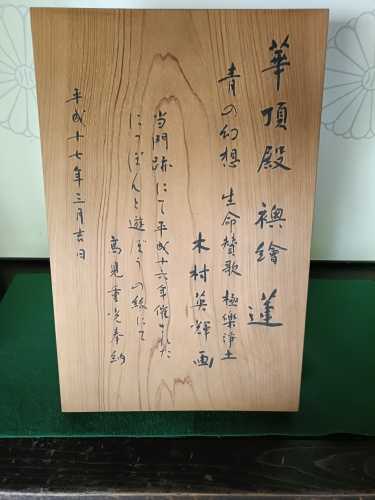 華頂殿 襖繪 蓮
青の幻想 生命賛歌 極樂浄土
木村英輝画
当門跡にて平成十六年催された
にっぽんと遊ぼうの縁にて
奉納
平成十七年三月吉日